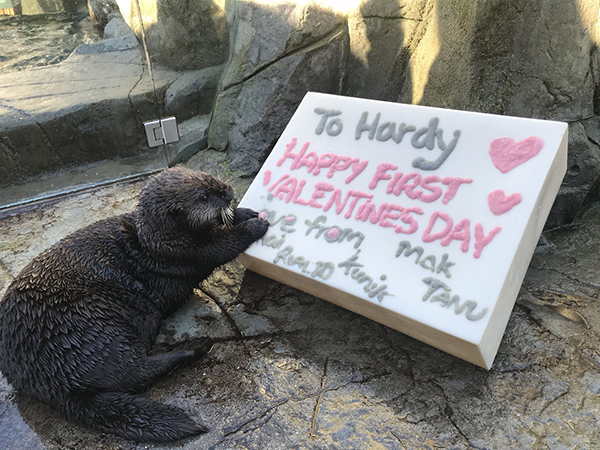 To Hardy
HAPPY FIRST
VALENTINES DAY
Love from Mak
Rialto Kunik Tanu